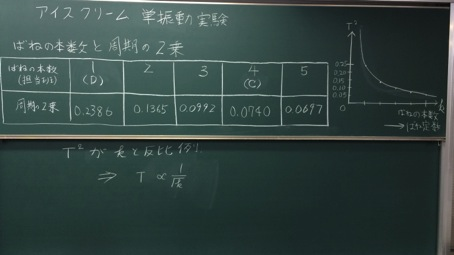 アイスクリーム 単振動実験
ばねの本数と周期の2乗
ばねの本数 1 2 3 4 5
(D) (C)
周期の2乗 0.2386 0.1365 0.0992 0.0740 0.0697
T²
0.05
0
k
ばねの本数
→ばね定数
T²がkと反比例
⇒ T ∝ 1/√k